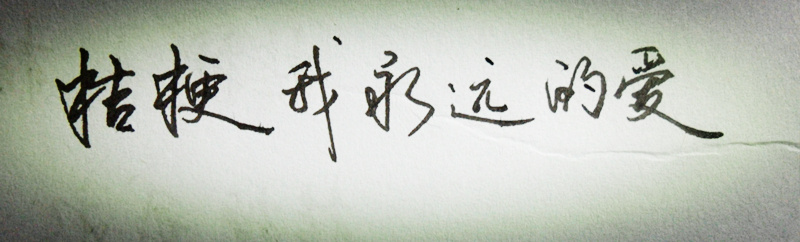 桔梗 我永远的爱